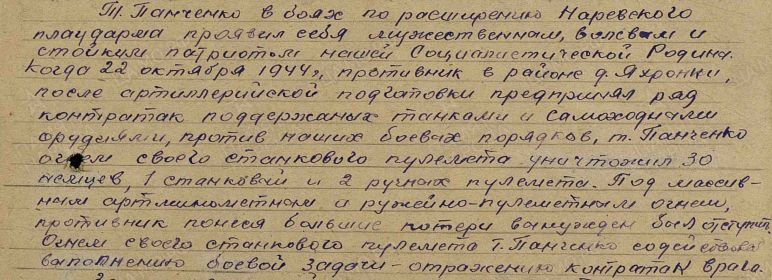 Т. Панченко в боях по расширению Наревского
плацдарма проявил себя мужественным, волевым и
стойким патриотом нашей Социалистической Родины.
Когда 22 октября 1944 г, противник в районе д. Яхронки,
после артиллерийской подготовки предпринял ряд
контратак поддержаных танками и самоходными
орудиями, против наших боевых порядков, т. Панченко
огнем своего станкового пулемета уничтожил 30
немцев, 1 станковый и 2 ручных пулемета. Под массив-
ным артминометным и ружейно-пулеметным огнем,
противник понеся большие потери вынужден был отступить
Огнем своего станкового пулемета т. Панченко содействовал
выполнению боевой задачи - отражению контратак врага.